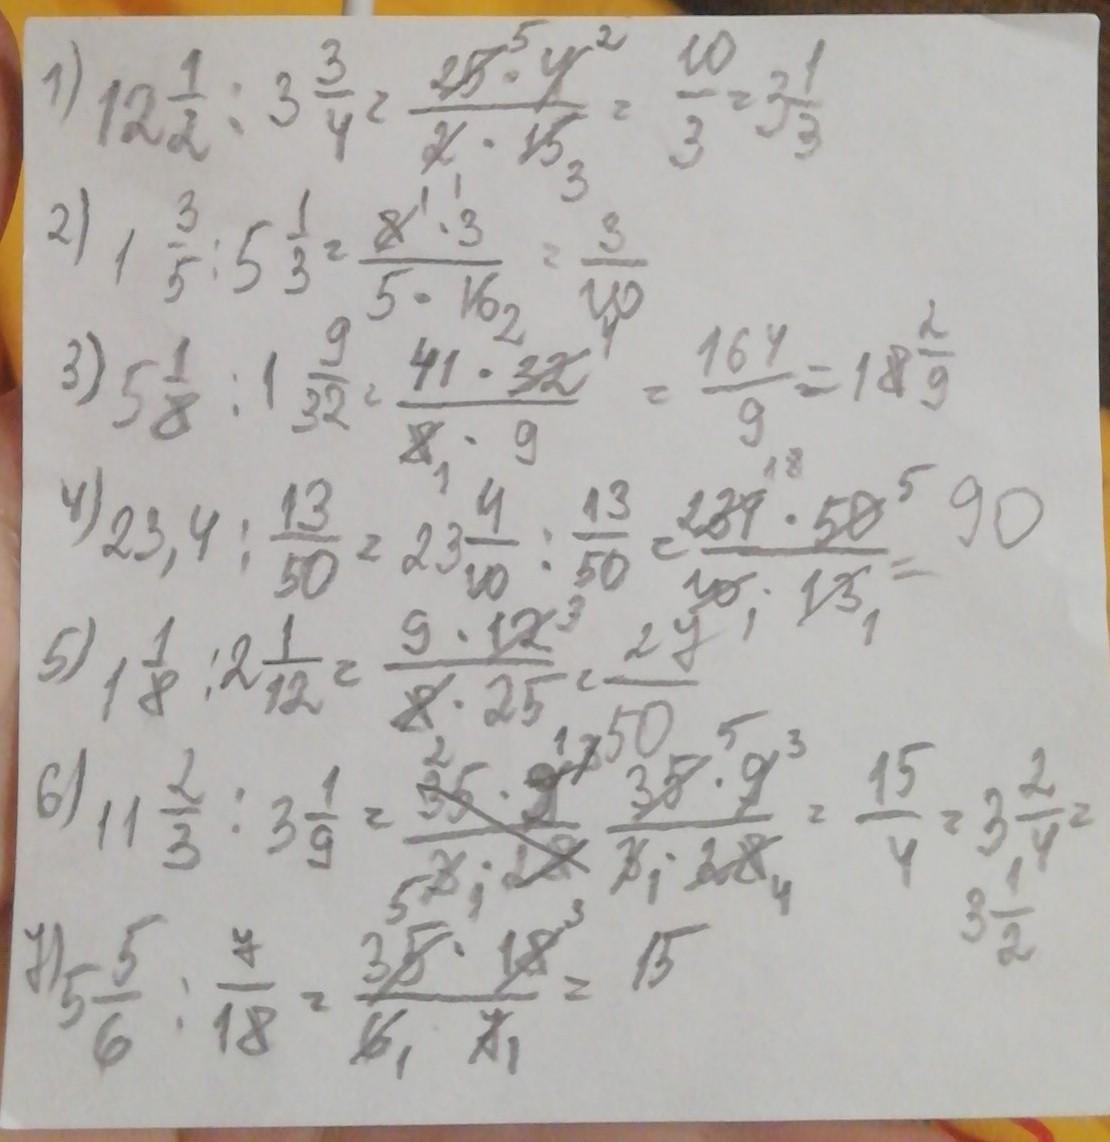 1) 12 1/2 : 3 3/4 = 25⁵·4²/2·15₃ = 10/3 = 3 1/3
2) 1 3/5 : 5 1/3 = 8¹·¹3/5·16₂ = 3/10
3) 5 1/8 : 1 9/32 = 41·32⁴/8₁·9 = 164/9 = 18 2/9
4) 23,4 : 13/50 = 23 4/10 : 13/50 = 234¹⁸·50⁵/10₁·13₁ = 90
5) 1 1/8 : 2 1/12 = 9·12³/8·25 = 27/50
6) 11 2/3 : 3 1/9 = 35⁵·9³/3₁·28₄ = 15/4 = 3 2/4 = 3 1/2
7) 5 5/6 : 7/18 = 35⁵·18³/6₁ 7₁ = 15